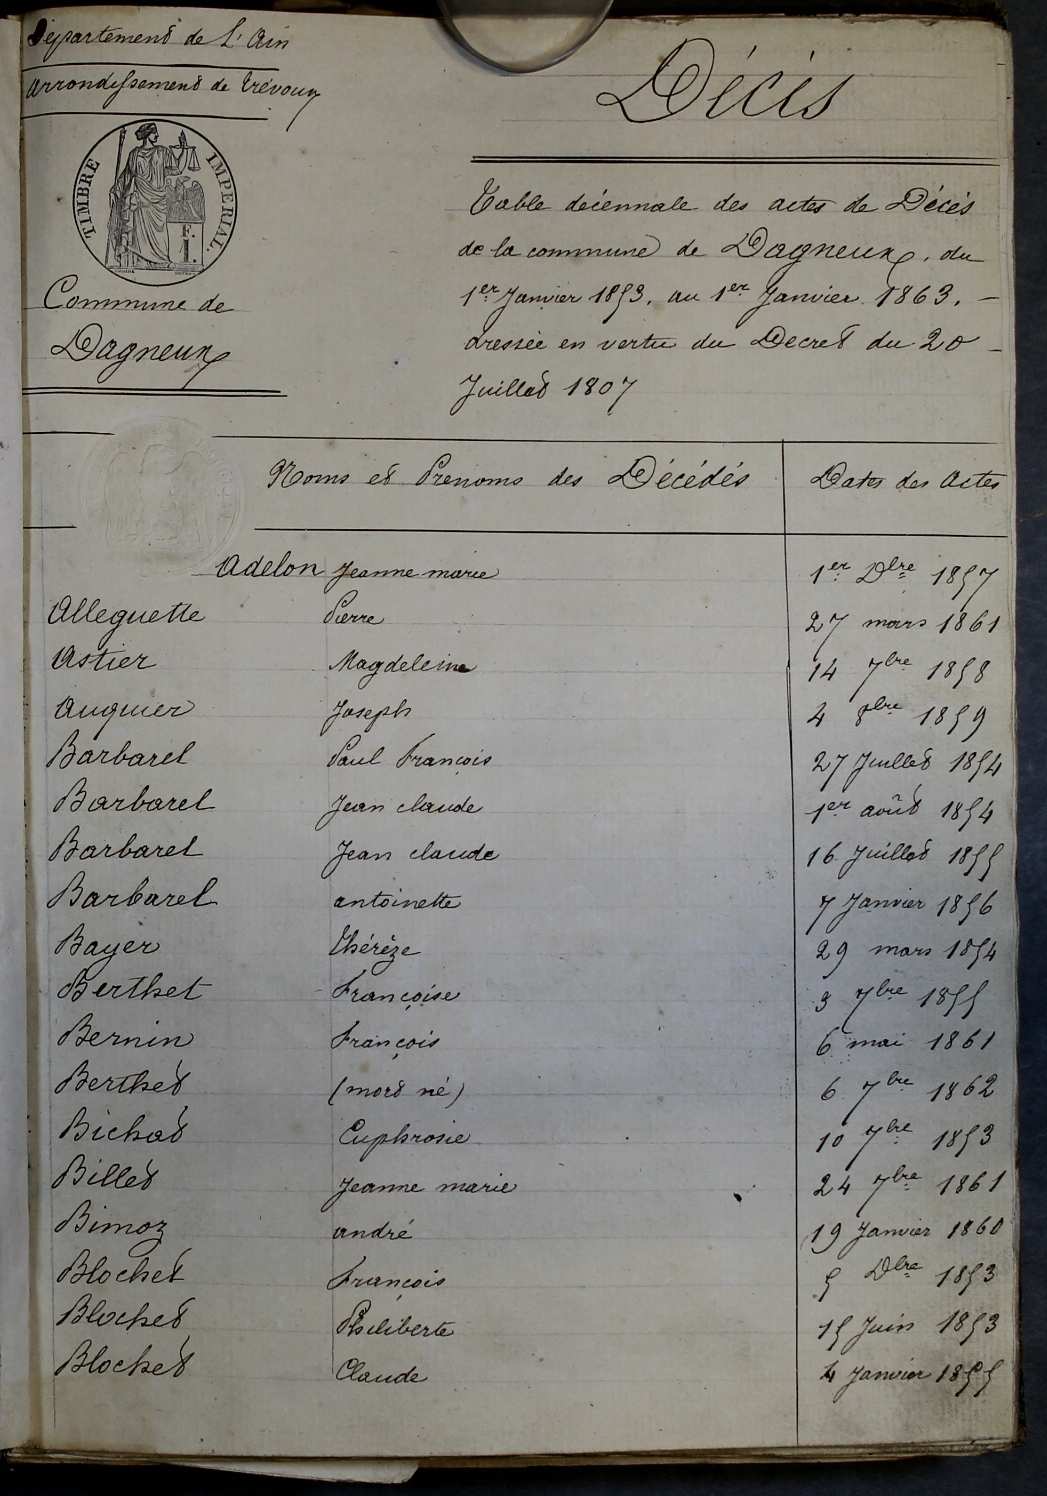 Département de L'Ain
arrondissement de Trévoux
TIMBRE IMPERIAL.
F.
I.
Commune de
Dagneux
Décès
Table décennale des actes de Décès
de la commune de Dagneux, du
1er Janvier 1853, au 1er Janvier 1863, –
dressée en vertu du Decret du 20 –
Juillet 1807
Noms et Prenoms des Décédés Dates des Actes
Adelon Jeanne marie 1er Dbre 1857
Alleguette Pierre 27 mars 1861
Astier Magdeleine 14 7bre 1858
Auguier Joseph 4 8bre 1859
Barbaret Paul François 27 Juillet 1854
Barbaret Jean claude 1er août 1854
Barbaret Jean claude 16 Juillet 1855
Barbaret antoinette 7 Janvier 1856
Bayer Thérèze 29 mars 1854
Berthet Françoise 3 7bre 1855
Bernin François 6 mai 1861
Berthet (mort né) 6 7bre 1862
Bichat Euphrosie 10 7bre 1853
Billet Jeanne marie 24 7bre 1861
Bimoz andré 19 Janvier 1860
Blochet François 5 Dbre 1853
Blochet Philiberte 15 Juin 1853
Blochet Claude 4 Janvier 1855